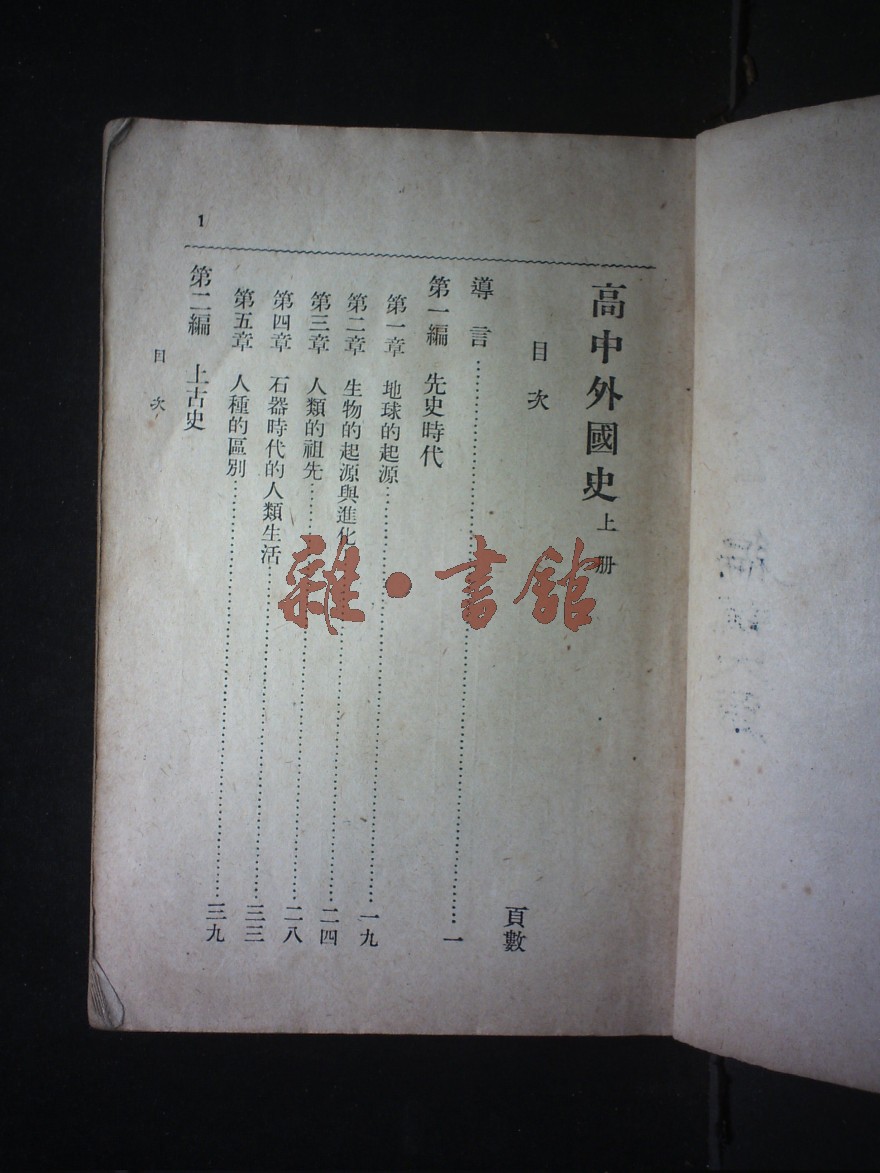 高中外國史 上册
目次
頁數
導言……一
第一編 先史時代
第一章 地球的起源……一九
第二章 生物的起源與進化……二四
第三章 人類的祖先……二八
第四章 石器時代的人類生活……三三
第五章 人種的區別……三九
第二編 上古史
目次
1
雜·書館